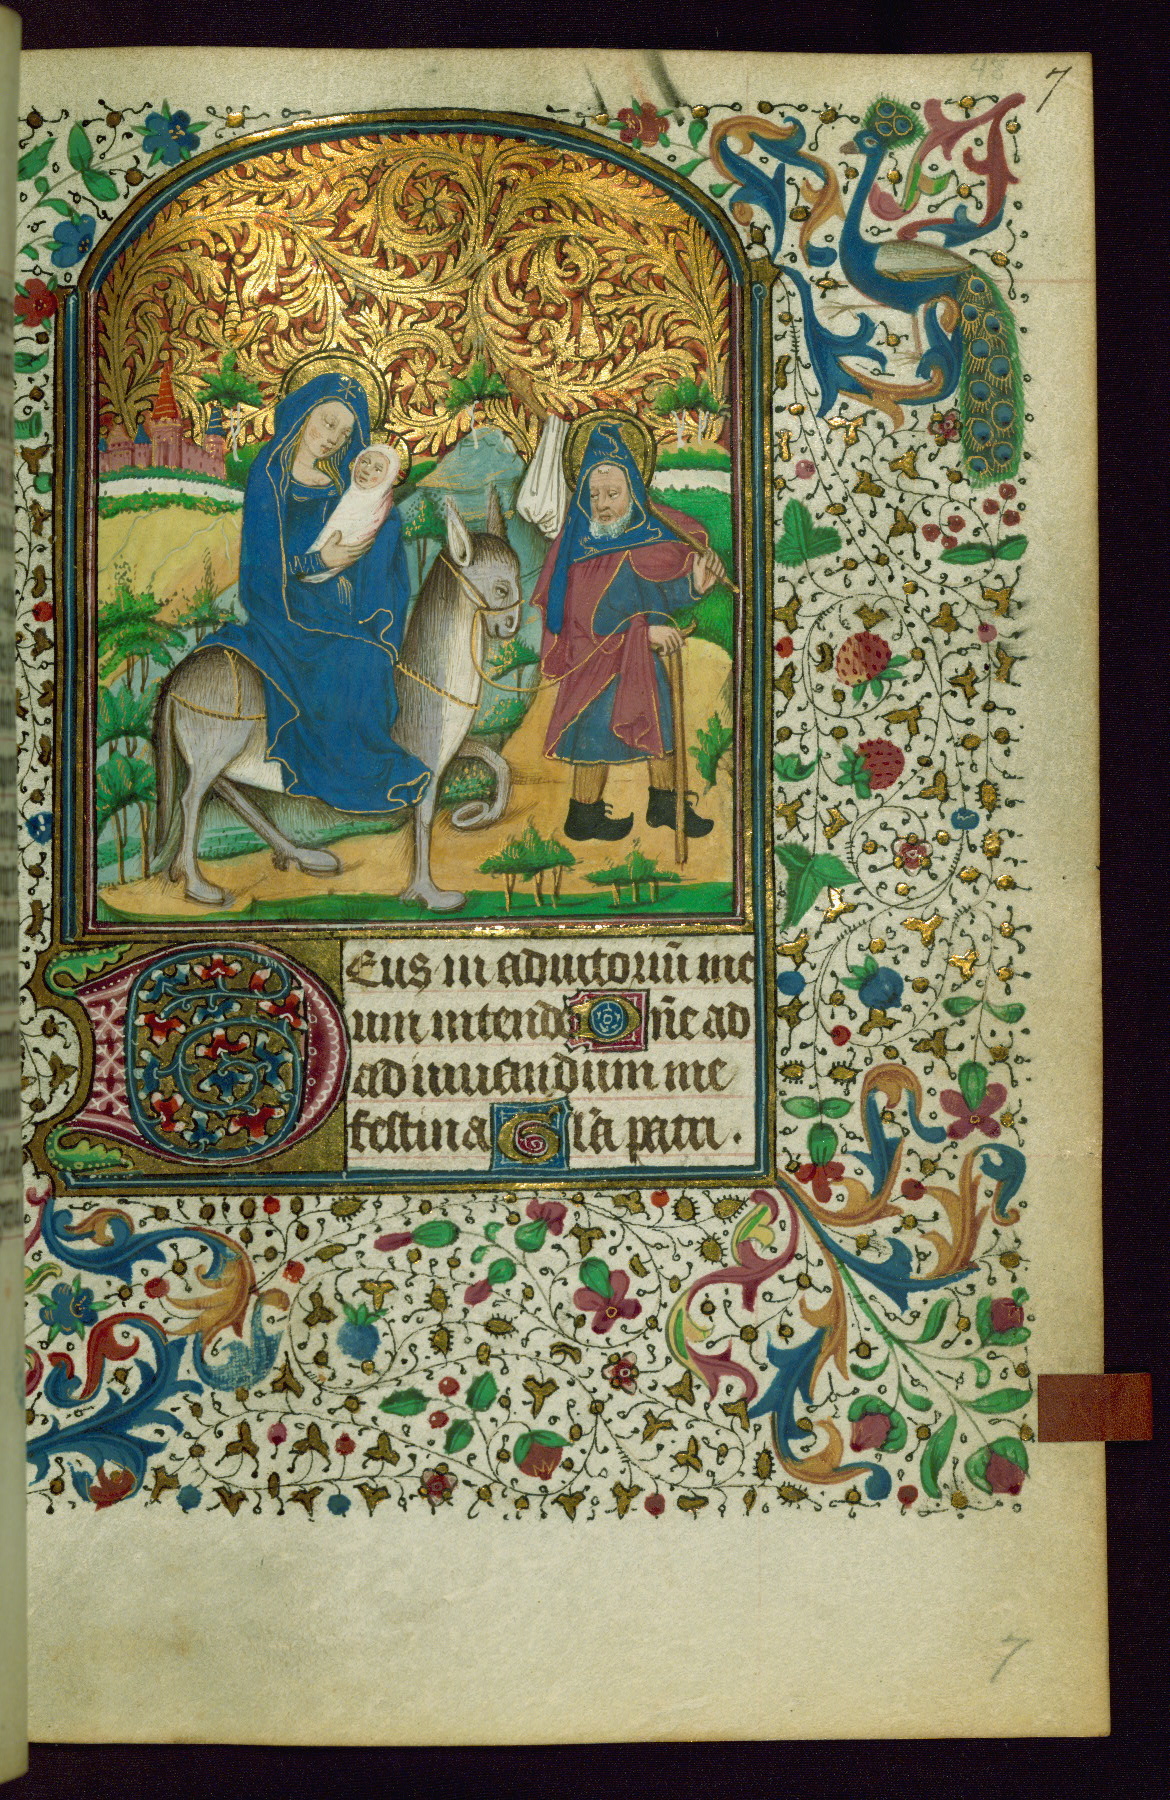 7
48
Deus in adiutoriū me
um intende Dn̄e ad
ad iuuandum me
festina Glīa patri .
7